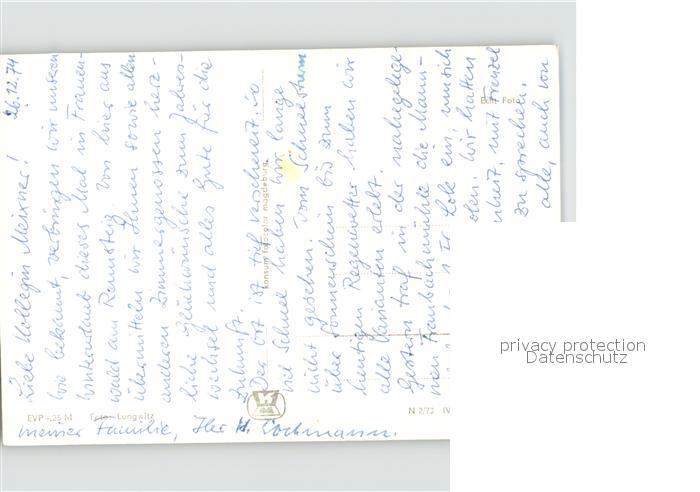 26.12.74
Liebe Kollegin Meixner!
Wie bekannt, verbringen wir unseren
Winterurlaub dieses Mal in Frauen-
wald am Rennsteig. Von hier aus
übermitteln wir Ihnen sowie allen
anderen Zimmergenossen herz-
liche Glückwünsche zum Jahres-
wechsel und alles Gute für die
Zukunft.
Der Ort ist tief verschneit, so
viel Schnee haben wir lange
nicht gesehen. Vom Schneesturm
über Sonnenschein bis zum
heutigen Regenwetter haben wir
alle Varianten erlebt.
Gestern traf in der nahegelege-
nen Fraubachmühle die
ein, um sich
zu erholen. Wir hatten
mit Frenzel
zu sprechen.
alle, auch von
meiner Familie, Ihr H. Lochmann.
EVP -,25 M Foto: Lungwitz
konsum fotocolor magdeburg
N 2/73 IV
Foto
privacy protection
Datenschutz